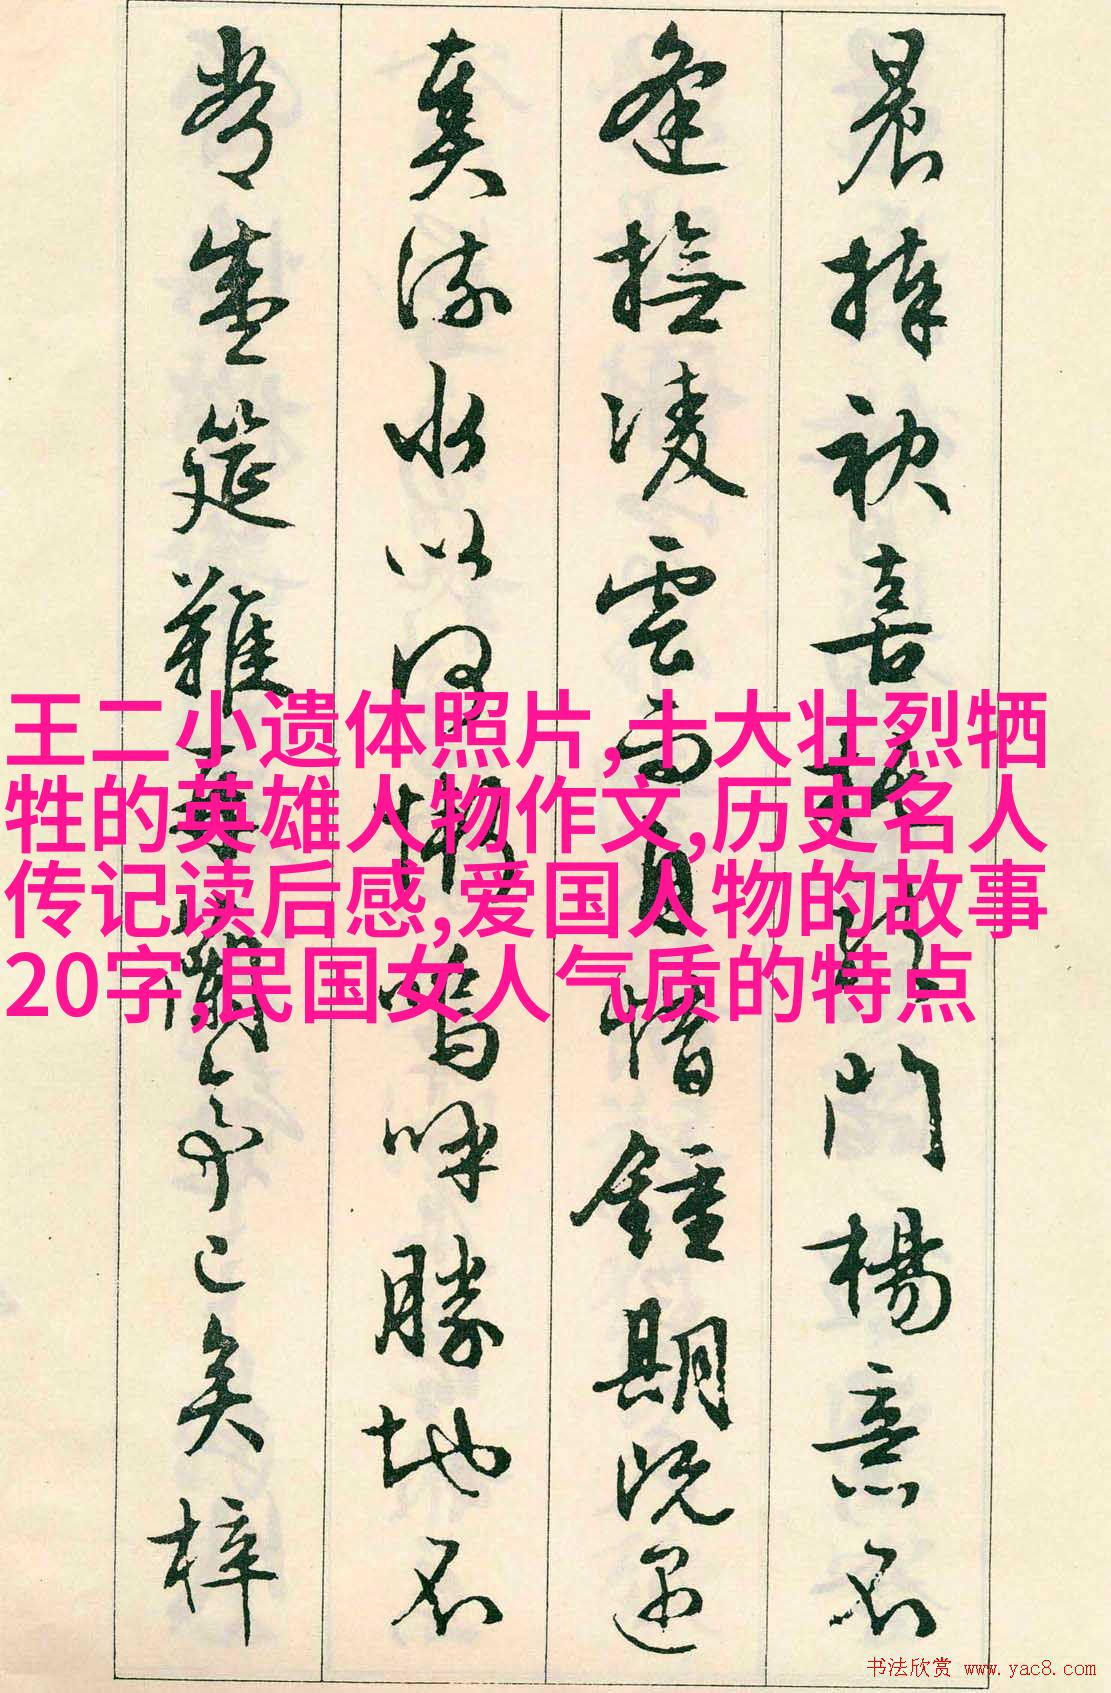 晨捧袂喜託龍門楊意不
逢撫凌雲而自惜鍾期既遇
奏流水以何慚嗚呼勝地不
常盛筵難再蘭亭已矣梓
王二小遗体照片,十大壮烈牺
牲的英雄人物作文,历史名人
传记读后感,爱国人物的故事
20字,民国女人气质的特点
书法欣赏 www.yac8.com